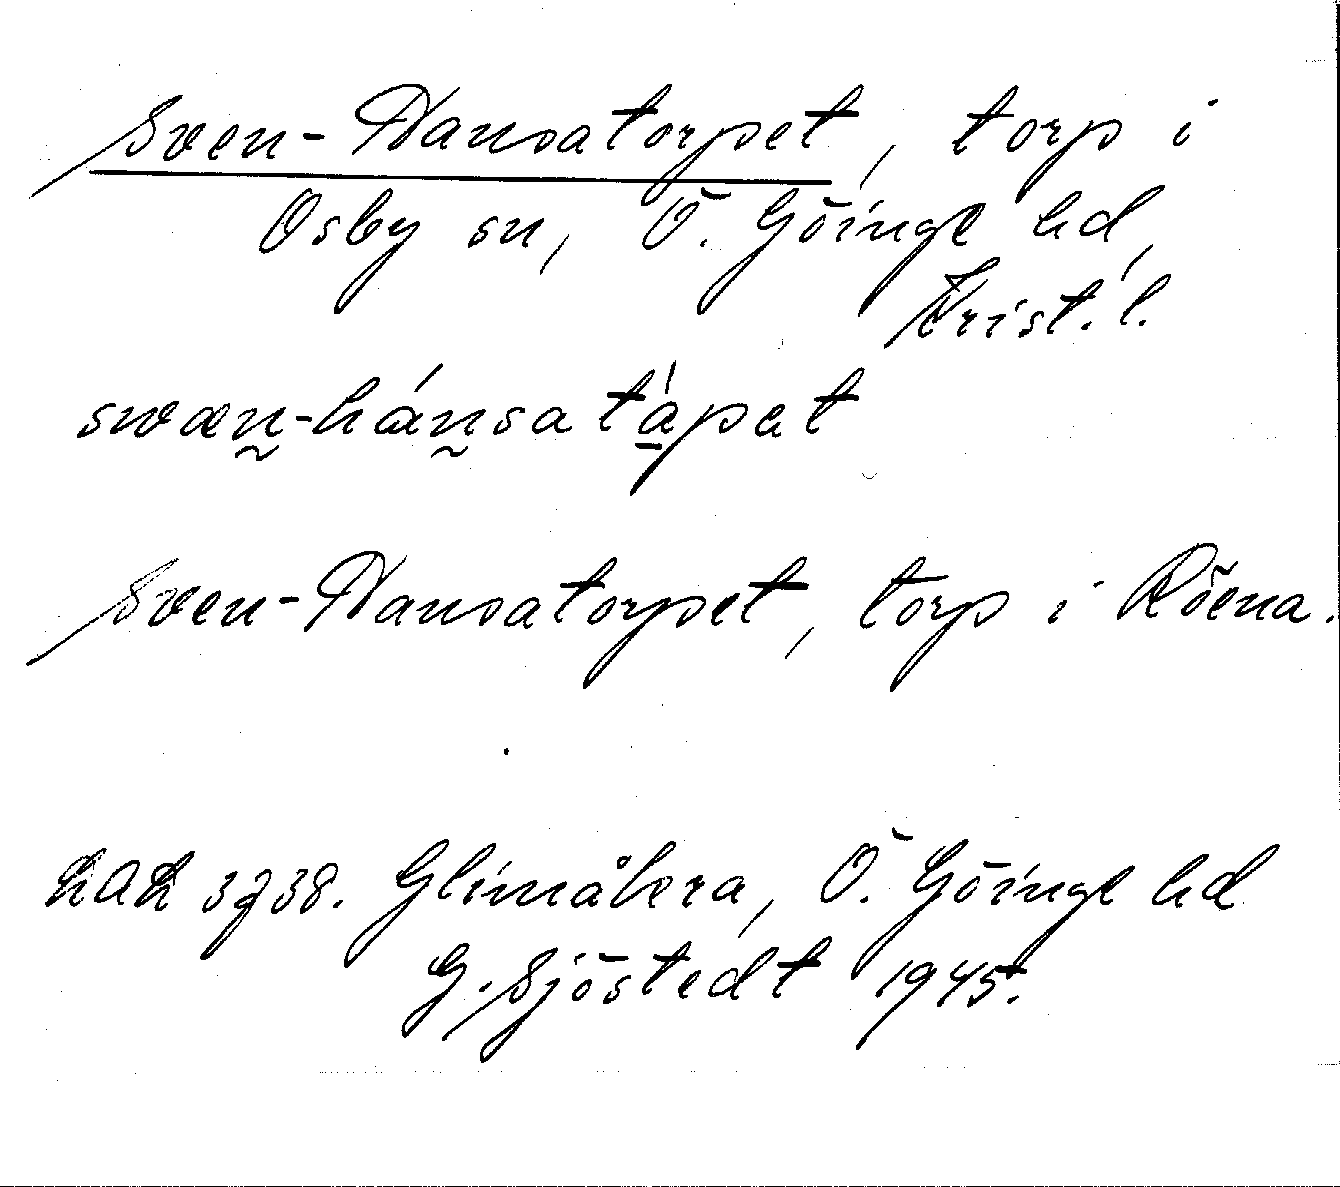 Sven-Hansatorpet, torp i
Osby sn, Ö. Göinge hd,
Krist. l.
swæn-hánsatápet
Sven-Hansatorpet, torp i Röena.
LAL 3738. Glimåkra, Ö. Göinge hd
G. Sjöstedt 1945.